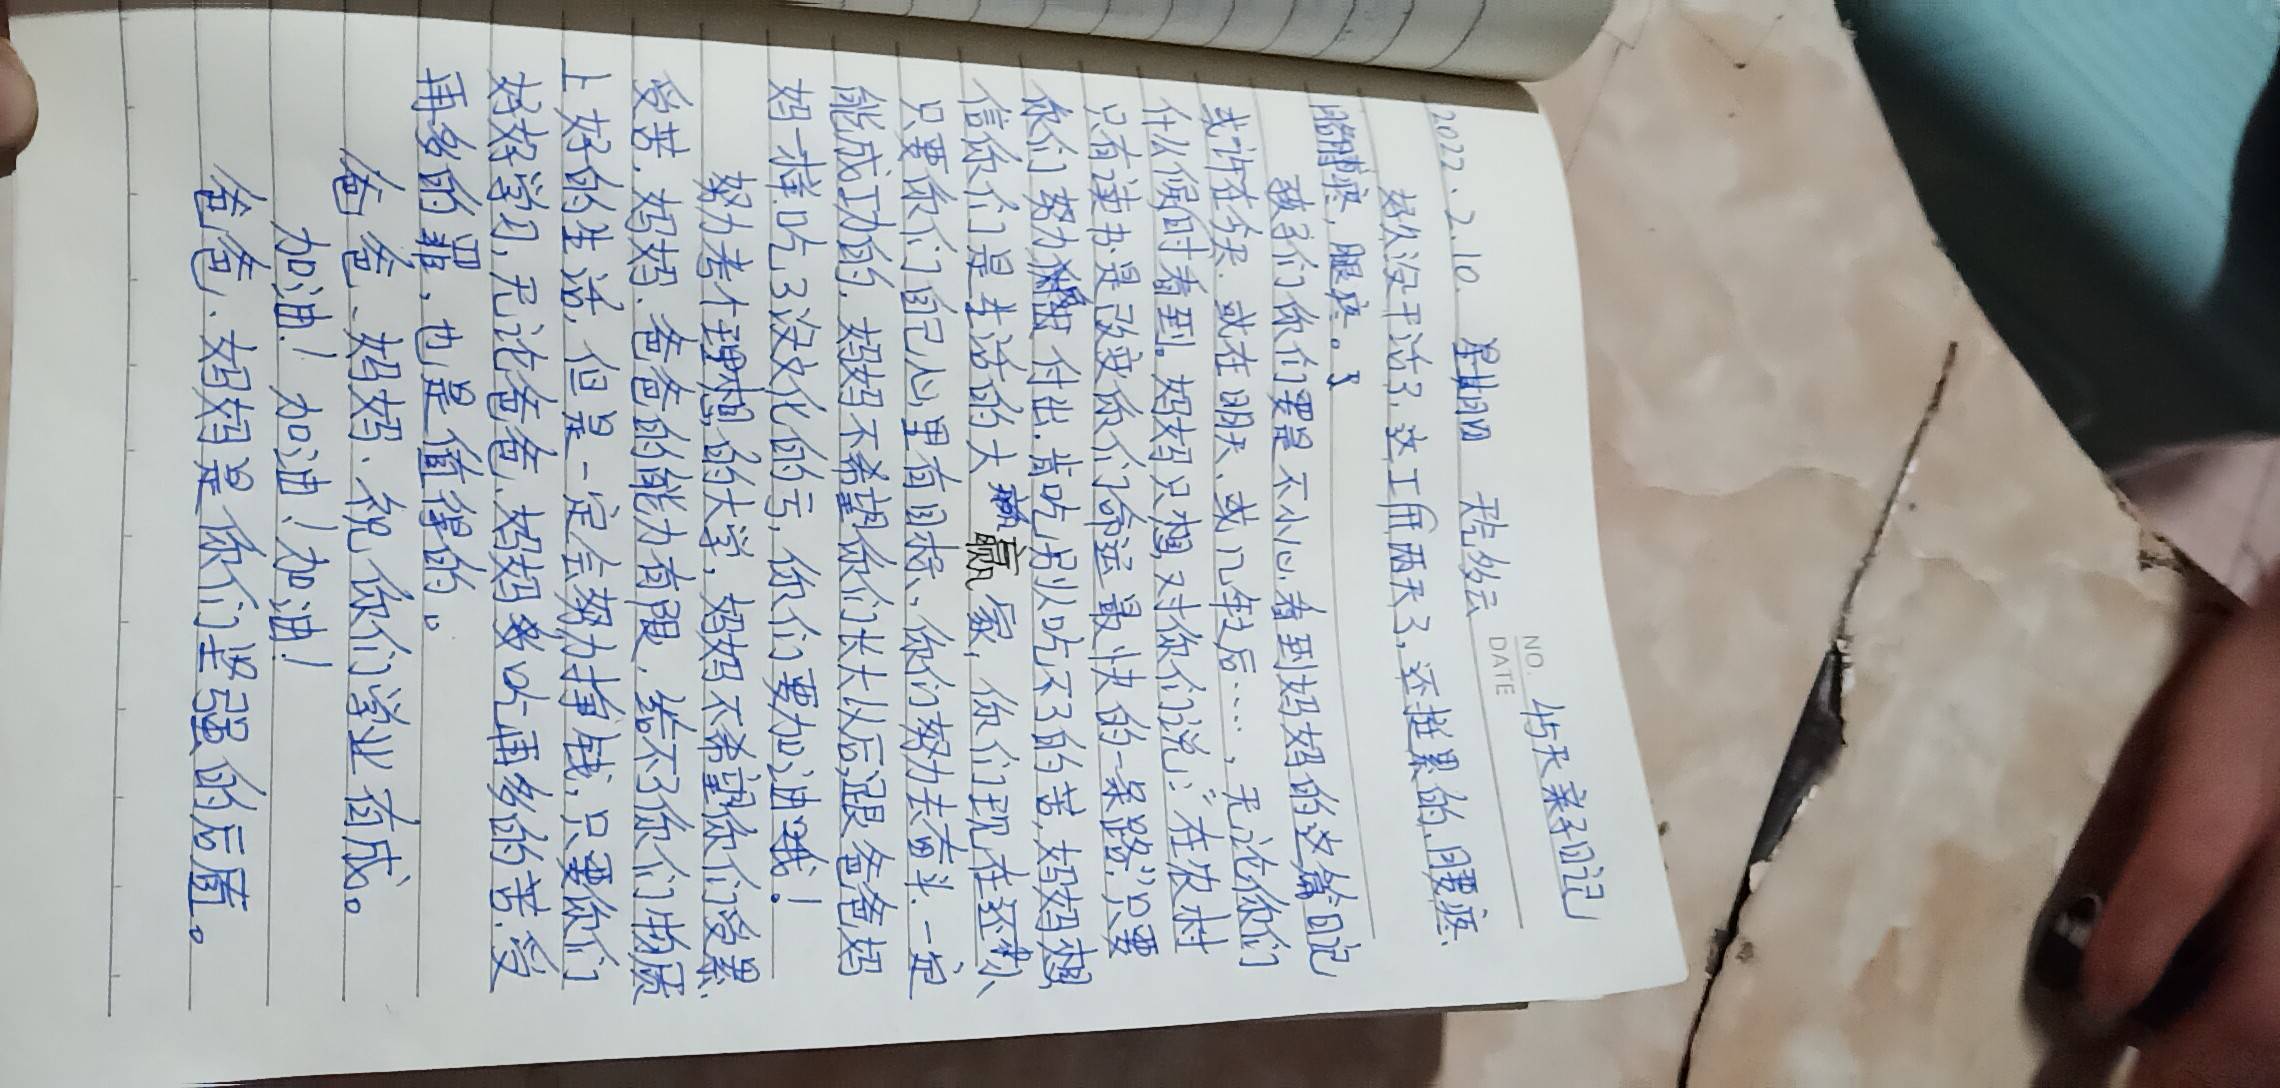 NO. 45天亲子日记
DATE
2022、2.10. 星期四 天气多云
好久没干活了,这工作两天了,还挺累的,腰疼、
胳膊疼,腿疼。
孩子们你们要是不小心看到妈妈的这篇日记
或许在今天、或在明天、或几年后……,无论你们
什么候时看到。妈妈只想对你们说:“在农村
只有读书是改变你们命运最快的一条路”,只要
你们努力 付出,肯吃别人吃不了的苦,妈妈相
信你们是生活的大 赢家,你们现在还小、
只要你们自己心里有目标、你们努力去奋斗、一定
能成功的,妈妈不希望你们长大以后,跟爸爸妈
妈一样吃了没文化的亏,你们要加油哦!
努力考个理想的大学,妈妈不希望你们受累、
受苦,妈妈、爸爸的能力有限,给不了你们物质
上好的生活,但是一定会努力挣钱,只要你们
好好学习,无论爸爸、妈妈多吃再多的苦、受
再多的罪、也是值得的。
爸爸、妈妈、祝你们学业有成。
加油!加油!加油!
爸爸、妈妈是你们坚强的后盾。